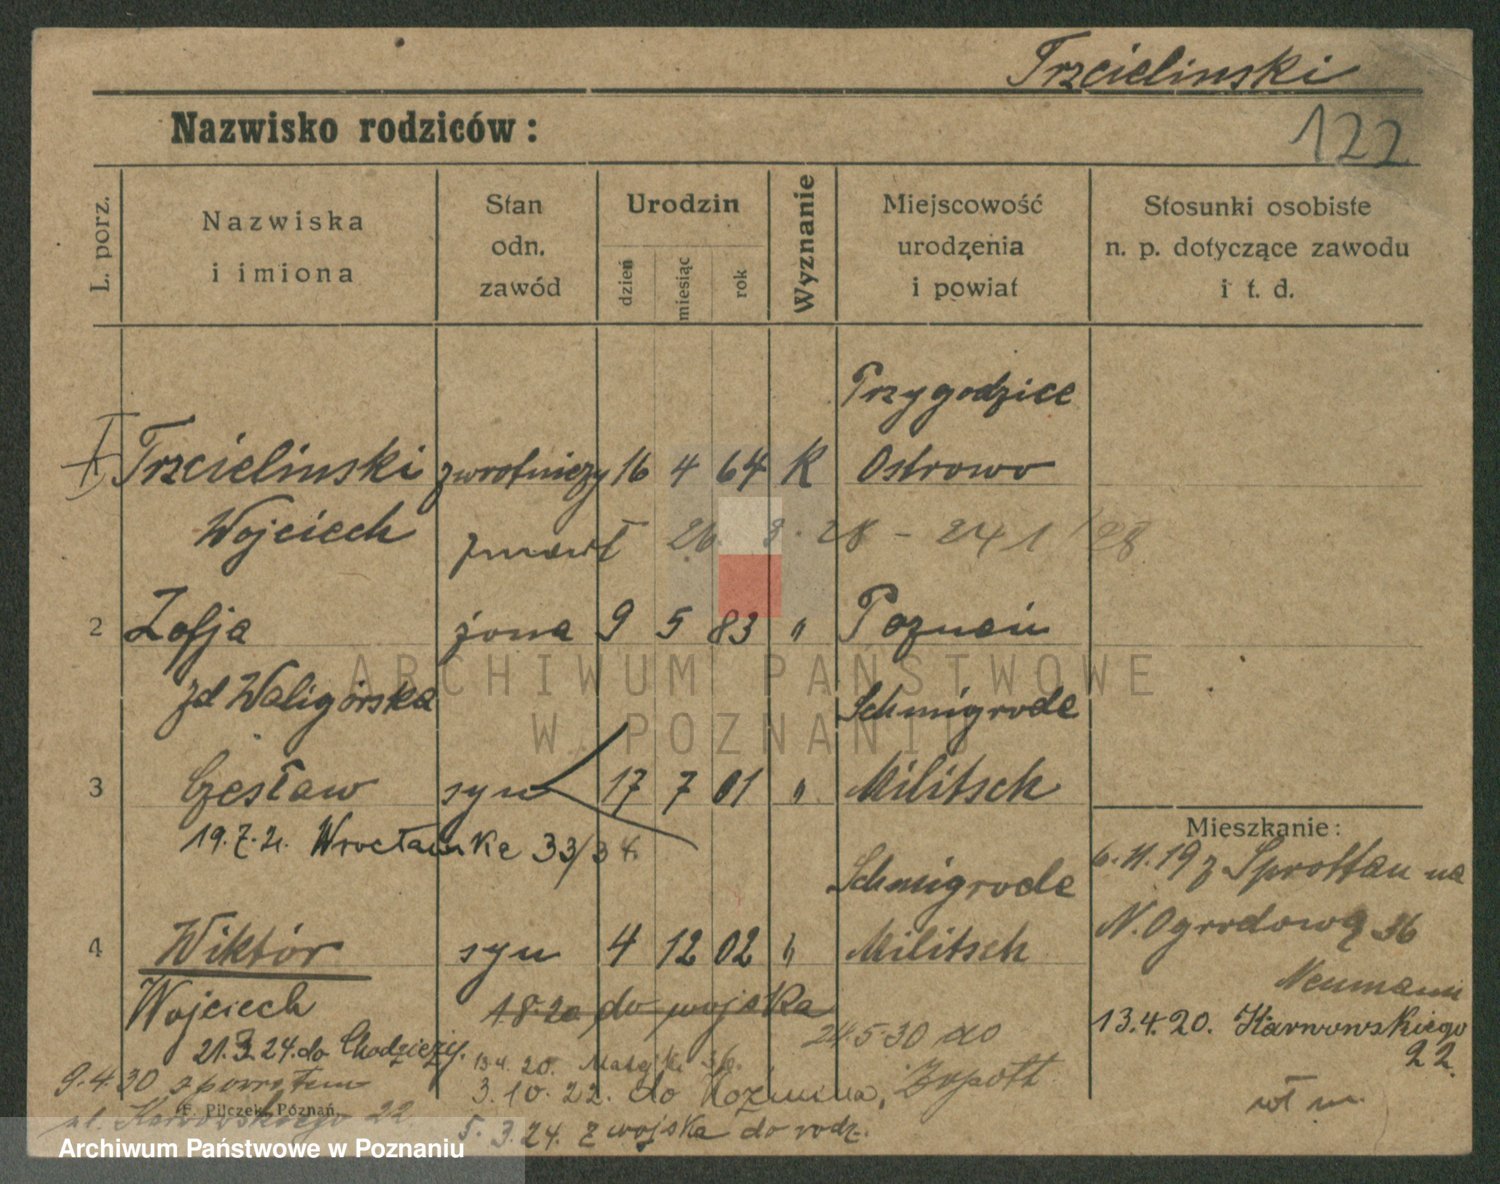 Trzcielinski
Nazwisko rodziców:
122
L. porz.
Nazwiska
i imiona
Stan
odn.
zawód
Urodzin
dzień
miesiąc
rok
Wyznanie
Miejscowość
urodzenia
i powiat
Stosunki osobiste
n. p. dotyczące zawodu
i t. d.
Przygodzice
Trzcielinski zwrotniczy 16 4 64 K Ostrowo
Wojciech zmarł 26. 3. 28 - 241/28
2 Zofja żona 9 5 83 " Poznań
zd Waligórska
Schmigrode
3 Czesław syn 17 7 01 " Militsch
19.7.21. Wrocławska 33/34.
Schmigrode
4 Wiktór syn 4 12 02 " Militsch
Wojciech
1.8.20 do wojska
21.3.24. do Chodzieży.
13.4.20. Matejki 36.
24.5.30 do
Zopott
9.4.30 z powrotem
3.10.22. do Koźmina,
ul. Karwowskiego 22
5.3.24. z wojska do rodz.
Mieszkanie:
6.11.19 z Sprottau na
N. Ogrodową 36
Neumann
13.4.20. Karwowskiego
22.
wł m.
F. Pilczek, Poznań.
ARCHIWUM PAŃSTWOWE
W POZNANIU
Archiwum Państwowe w Poznaniu